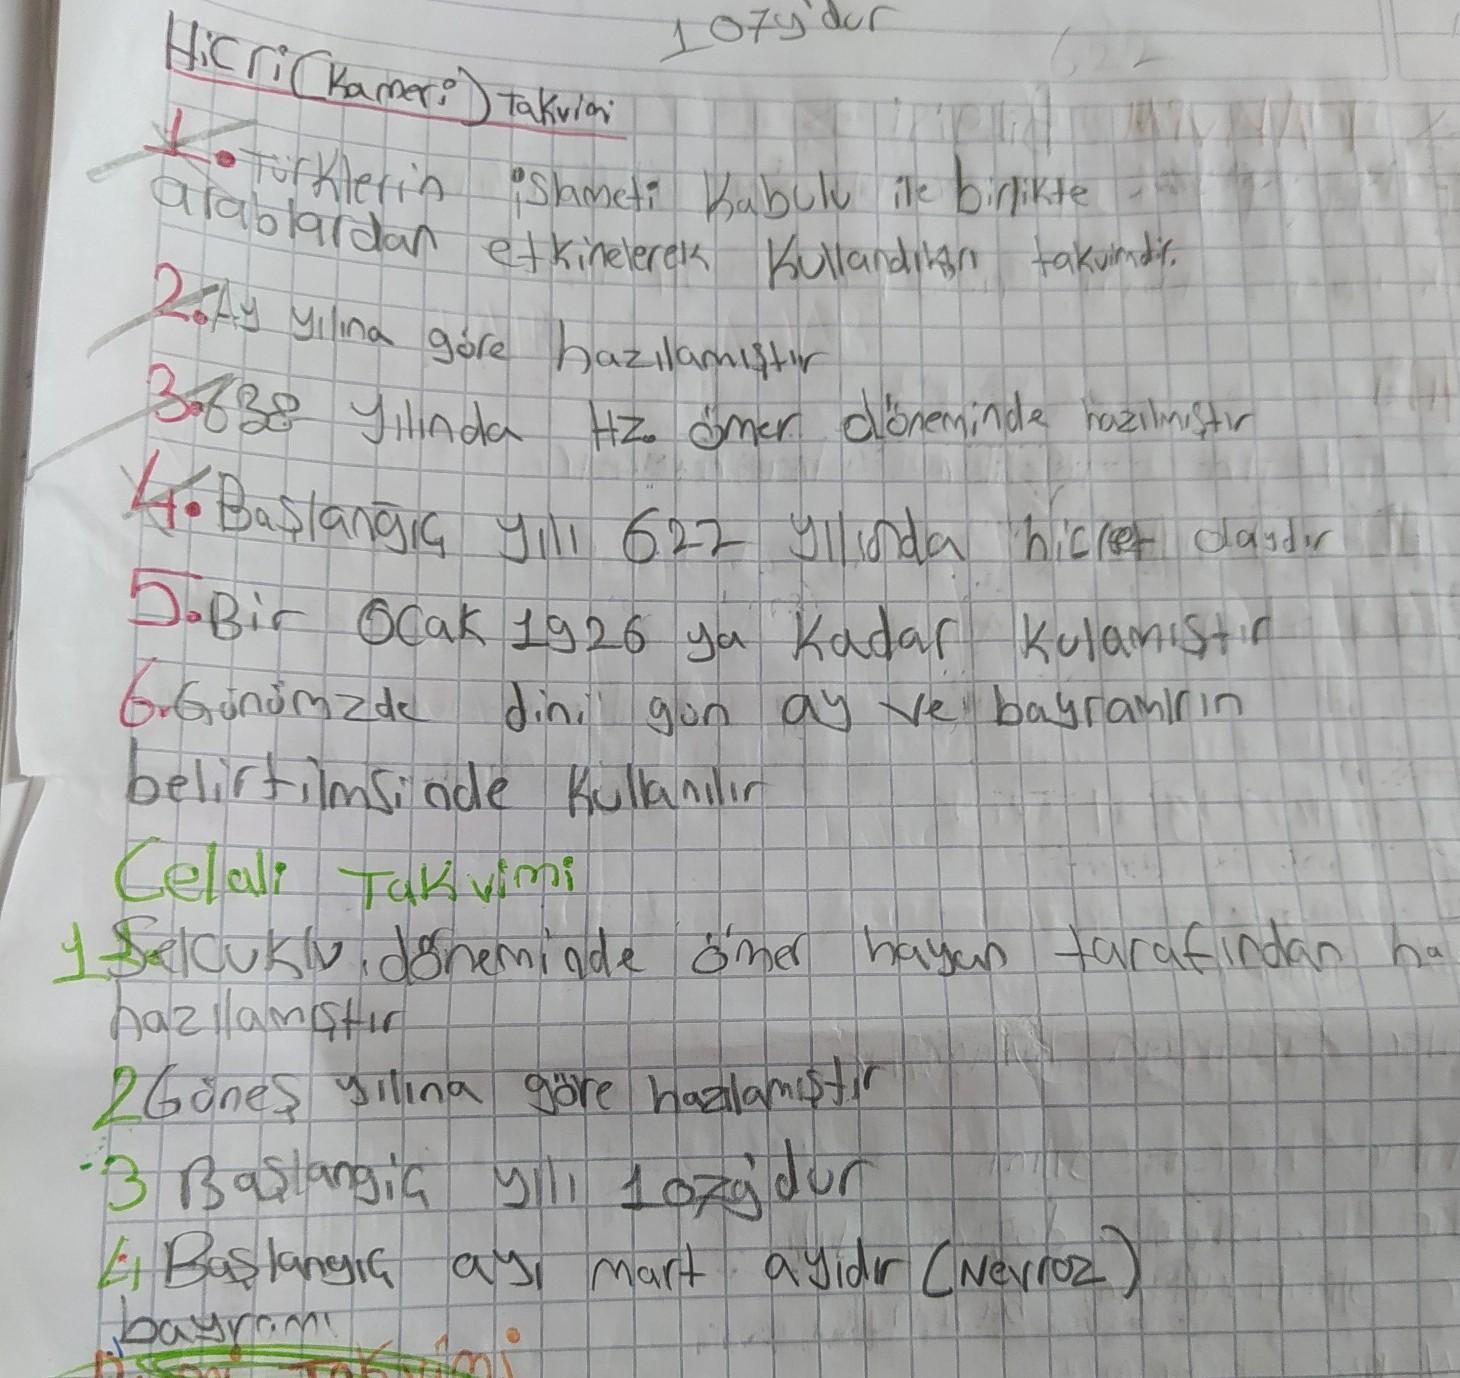 1079'dur
Hicri (Kameri) Takvimi
1. Türklerin islameti Kabulu ile birlikte
arablardan etkinelerek Kullandıkları takvimdir.
2. Ay yılına göre hazılamıştır
3. 638 yılında Hz. ömer döneminde hazılmıştır
4. Başlangıç yılı 622 yılında hicret olaydır
5. Bir Ocak 1926 ya Kadar Kulamıştır
6. Günümzde dini gün ay ve bayramlrın
belirtilmsinde Kullanılır
Celali Takvimi
1 Selcuklu döneminde ömer hayam tarafından ha
hazılamıştır
2 Güneş yılına göre hazılamıştır
3 Başlangıç yılı 1079'dur
4 Başlangıç ayı mart ayıdır (Nevroz)
bayramı
Takvimi